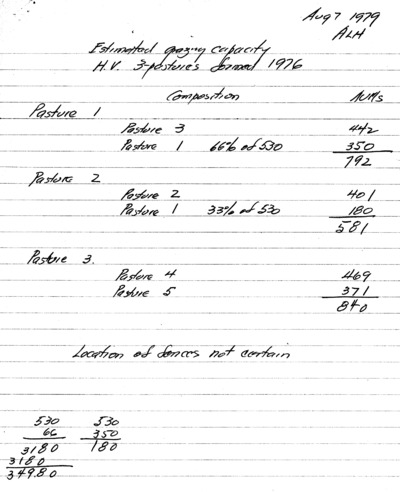 Aug 7 1979
ALH
Estimated grazing capacity
H.V. 3-pastures formed 1976
Composition AUMs
Pasture 1
Pasture 3 442
Pasture 1 66% of 530 350
792
Pasture 2
Pasture 2 401
Pasture 1 33% of 530 180
581
Pasture 3.
Pasture 4 469
Pasture 5 371
840
Location of fences not certain
530 530
66 350
3180 180
3180
349.80